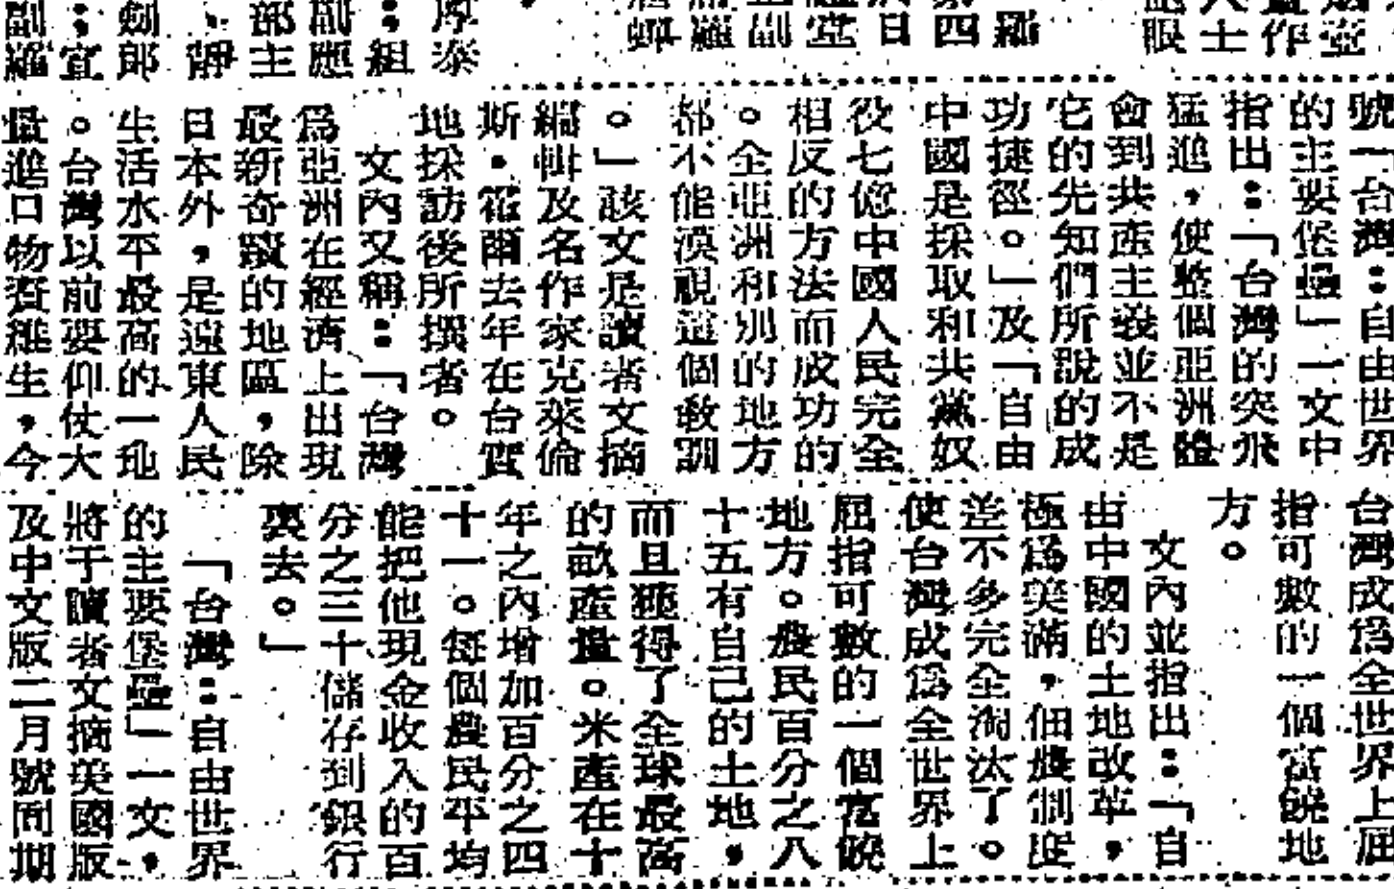 厚泰
：組
副應
部主
、靜
劍郎
：宜
副羅
羅
第四
日
堂
副
羅
蟬
壺
作
人士
眼
號「台灣：自由世界
的主要堡壘」一文中
指出：「台灣的突飛
猛進，使整個亞洲體
會到共產主義並不是
它的先知們所說的成
功捷徑。」及「自由
中國是採取和共黨奴
役七億中國人民完全
相反的方法而成功的
。全亞洲和別的地方
都不能漠視這個教訓
。」該文是讀者文摘
編輯及名作家克萊倫
斯·霍爾去年在台實
地採訪後所撰者。
文內又稱：「台灣
為亞洲在經濟上出現
最新奇蹟的地區，除
日本外，是遠東人民
生活水平最高的一地
。台灣以前要仰仗大
量進口物資維生，今
台灣成為全世界上屈
指可數的一個富饒地
方。
文內並指出：「自
由中國的土地改革，
極為美滿，佃農制度
差不多完全淘汰了。
使台灣成為全世界上
屈指可數的一個富饒
地方。農民百分之八
十五有自己的土地，
而且獲得了全球最高
的畝產量。米產在十
年之內增加百分之四
十一。每個農民平均
能把他現金收入的百
分之三十儲存到銀行
裏去。」
「台灣：自由世界
的主要堡壘」一文，
將于讀者文摘美國版
及中文版二月號同期